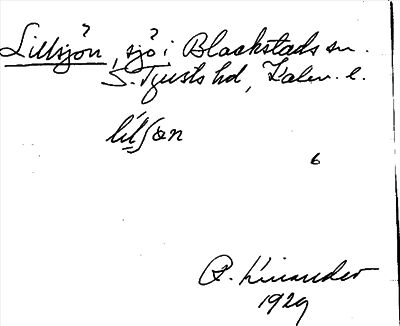 Lillsjön, sjö i Blackstads sn.
S. Tjusts hd, Kalm. l.
lílʃøn
6
R. Kinander
1929